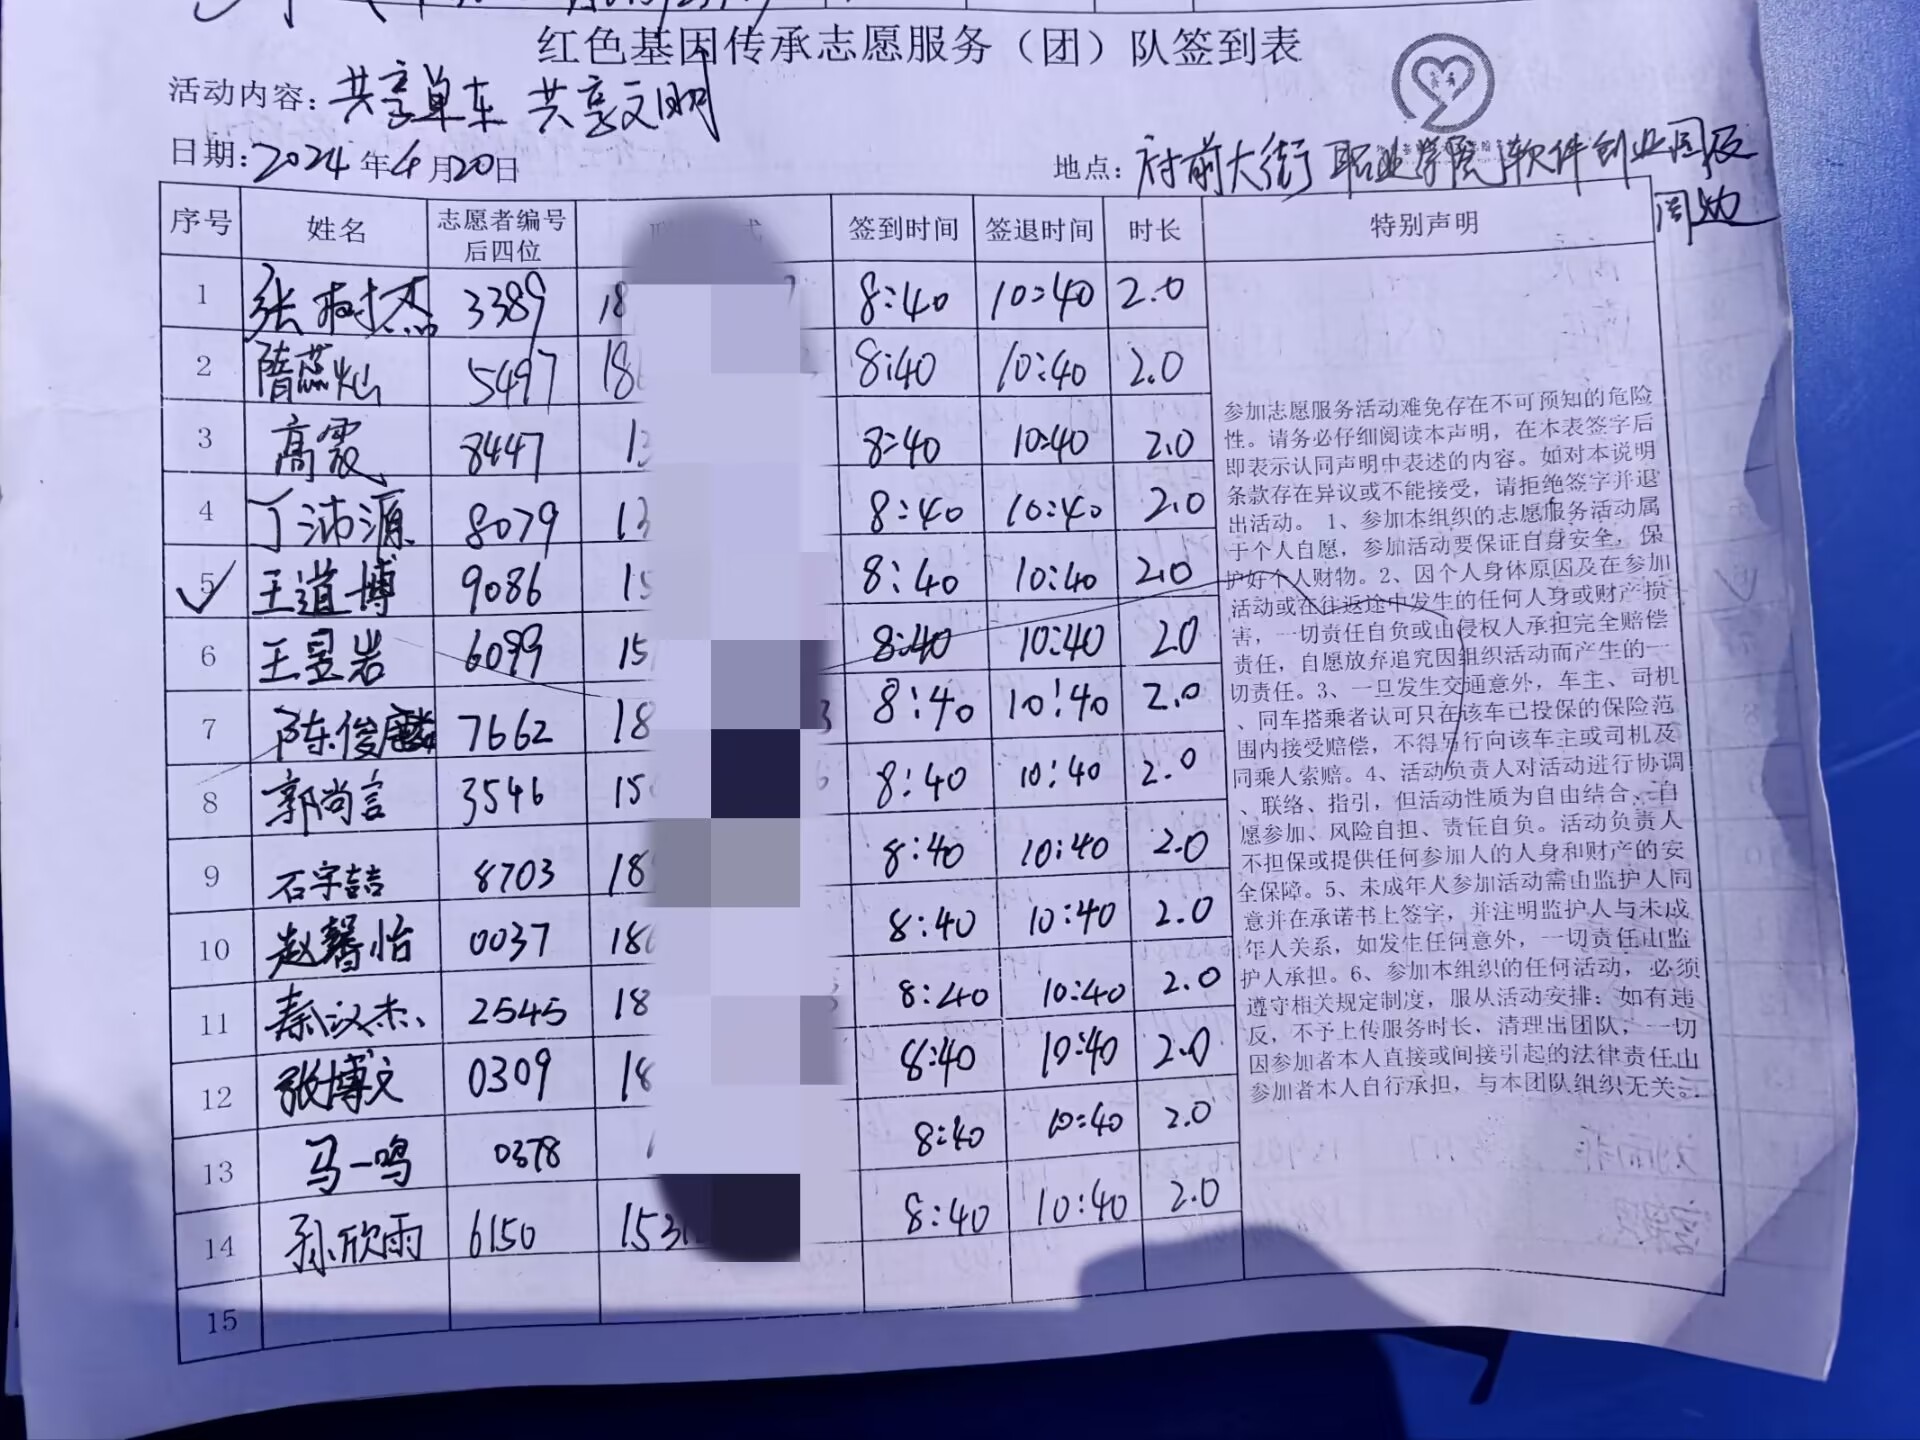 红色基因传承志愿服务（团）队签到表
活动内容：共享单车 共享文明
日期：2024年4月20日
地点：府前大街 职业学院 软件创业园及
周边
序号 姓名 志愿者编号后四位 签到时间 签退时间 时长 特别声明
1 张树杰 3389 18 8:40 10:40 2.0
2 隋燕灿 5497 18 8:40 10:40 2.0
3 高霞 8447 13 8:40 10:40 2.0
4 丁沛源 8079 13 8:40 10:40 2.0
5 王道博 9086 15 8:40 10:40 2.0
6 王昱岩 6099 15 8:40 10:40 2.0
7 陈俊麟 7662 18 8:40 10:40 2.0
8 郭尚言 3546 15 8:40 10:40 2.0
9 石宇喆 8703 18 8:40 10:40 2.0
10 赵馨怡 0037 18 8:40 10:40 2.0
11 秦汉杰 2545 18 8:40 10:40 2.0
12 张博文 0309 18 8:40 10:40 2.0
13 马一鸣 0378 8:40 10:40 2.0
14 孙欣雨 6150 153 8:40 10:40 2.0
15
参加志愿服务活动难免存在不可预知的危险
性。请务必仔细阅读本声明，在本表签字后
即表示认同声明中表述的内容。如对本说明
条款存在异议或不能接受，请拒绝签字并退
出活动。 1、参加本组织的志愿服务活动属
于个人自愿，参加活动要保证自身安全，保
护好个人财物。2、因个人身体原因及在参加
活动或在往返途中发生的任何人身或财产损
害，一切责任自负或由侵权人承担完全赔偿
责任，自愿放弃追究因组织活动而产生的一
切责任。3、一旦发生交通意外，车主、司机
、同车搭乘者认可只在该车已投保的保险范
围内接受赔偿，不得另行向该车主或司机及
同乘人索赔。4、活动负责人对活动进行协调
、联络、指引，但活动性质为自由结合、自
愿参加、风险自担、责任自负。活动负责人
不担保或提供任何参加人的人身和财产的安
全保障。5、未成年人参加活动需由监护人同
意并在承诺书上签字，并注明监护人与未成
年人关系，如发生任何意外，一切责任由监
护人承担。6、参加本组织的任何活动，必须
遵守相关规定制度，服从活动安排；如有违
反，不予上传服务时长，清理出团队，一切
因参加者本人直接或间接引起的法律责任由
参加者本人自行承担，与本团队组织无关。